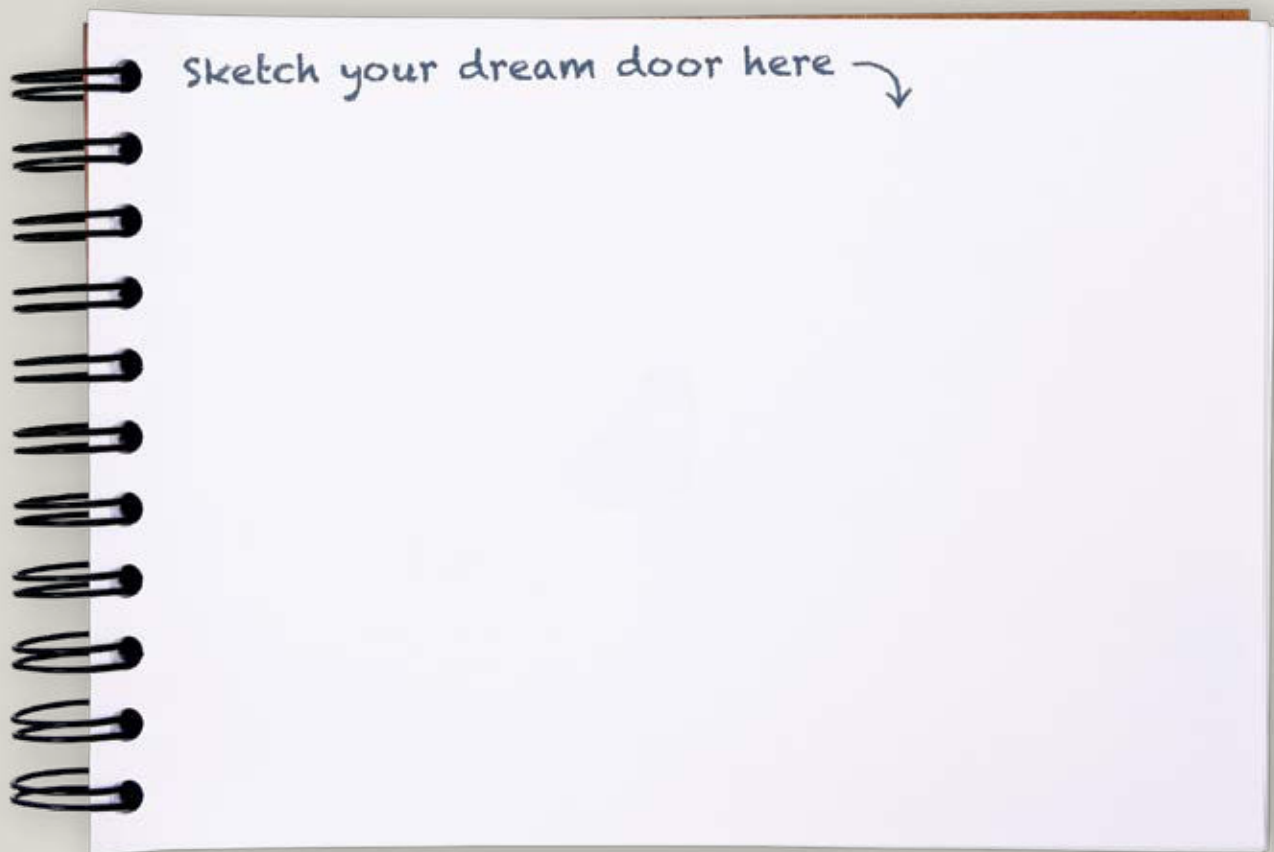 Sketch your dream door here